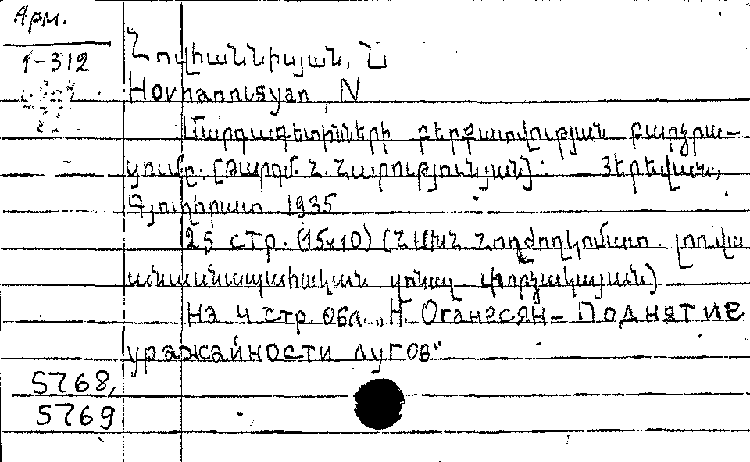 Арм.
1-312
Հովհաննիսյան, Ն
Hovhannisyan, N
Մարգագետինների բերքատվության բարձրա-
ցումը. [Թարգմ. Հ. Հարությունյան]: Յերեվան,
Գյուղհրատ 1935
25 стр. (15x10) (ՀԽՍՀ Հողժողկոմատ.
անասնապահական զոնալ փորձակայան)
На 4 стр. обл. „Н. Оганэсян – Поднятие
уражайности лугов"
5768,
5769